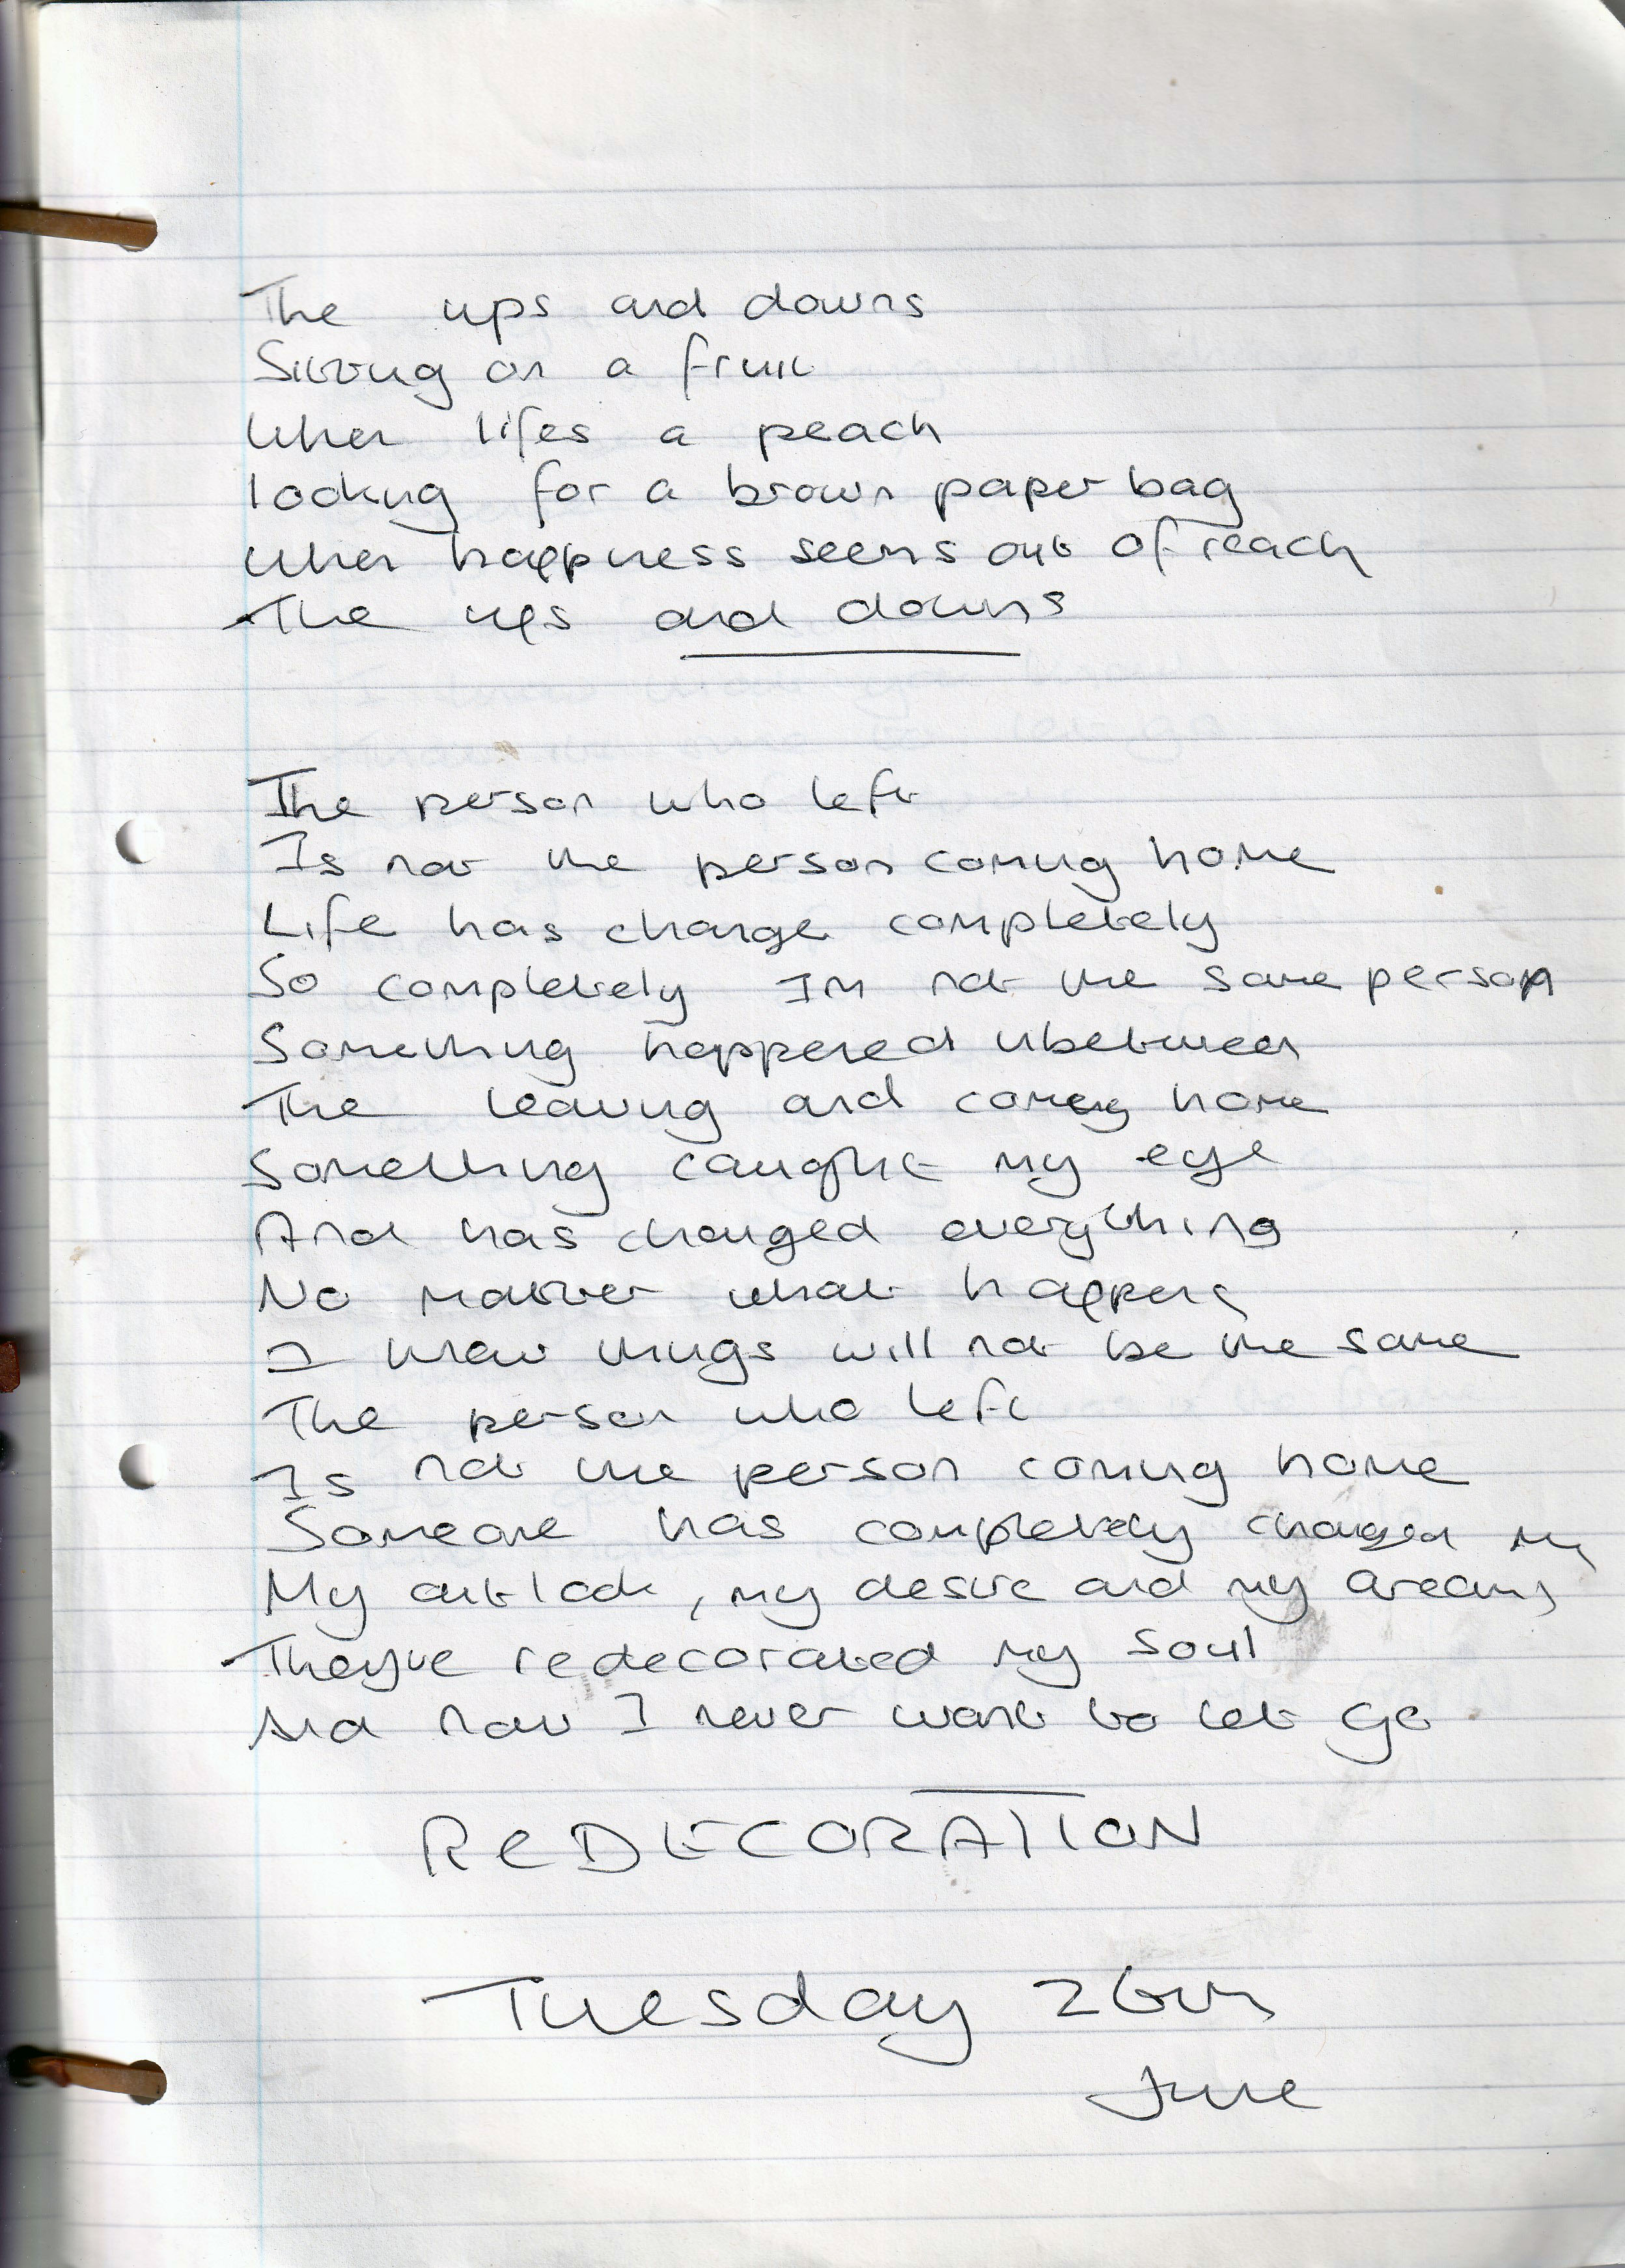 The ups and downs
Sitting on a fruit
When lifes a peach
looking for a brown paper bag
When happness seems out of reach
The ups and downs
The person who left
Is not the person coming home
Life has change completely
So completely Im not the same person
Something happened inbetween
The leaving and coming home
Something caught my eye
And has changed everything
No matter what happens
I know things will not be the same
The person who left
Is not the person coming home
Someone has completely changed my
My outlook, my desire and my dreams
Theyve redecorated my soul
And now I never want to let go
ReDECORATION
Tuesday 26th
June